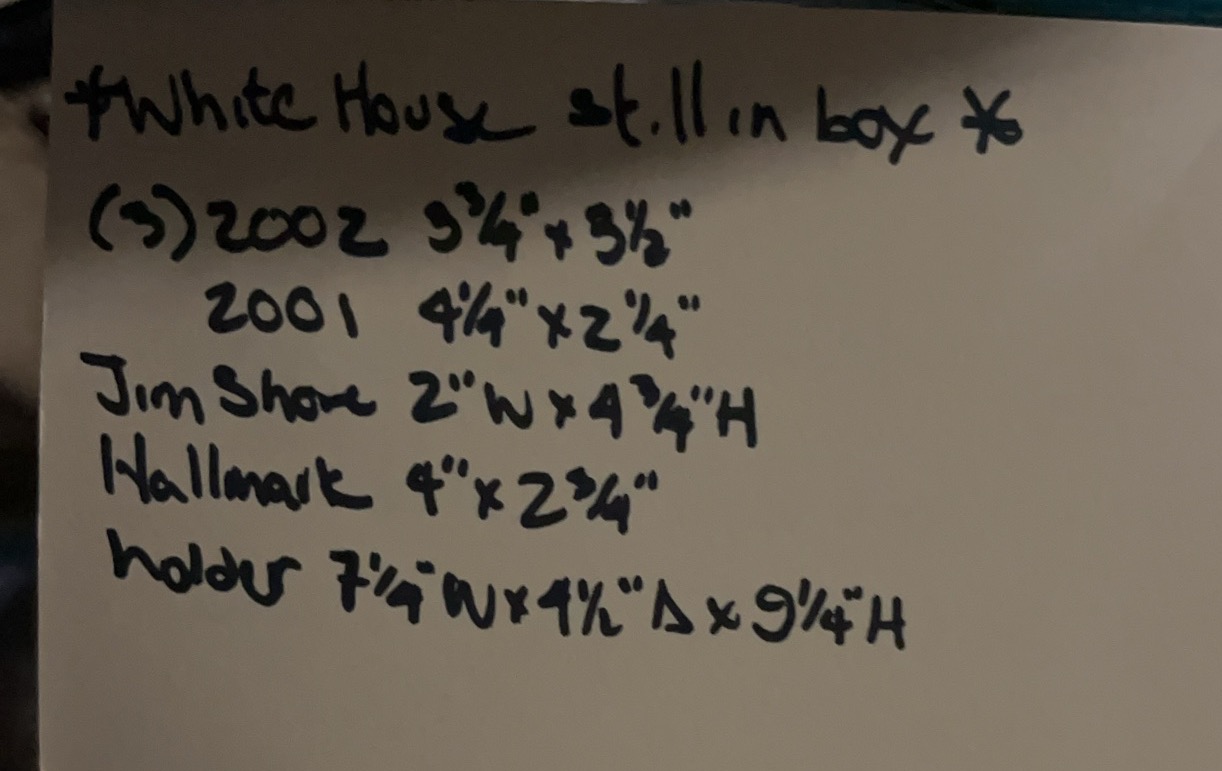 *White House still in box *
(3) 2002 3 3/4" x 3 1/2"
2001 4 1/4" x 2 1/4"
Jim Shore 2" W x 4 3/4" H
Hallmark 4" x 2 3/4"
holder 7 1/4" W x 4 1/2" D x 9 1/4" H